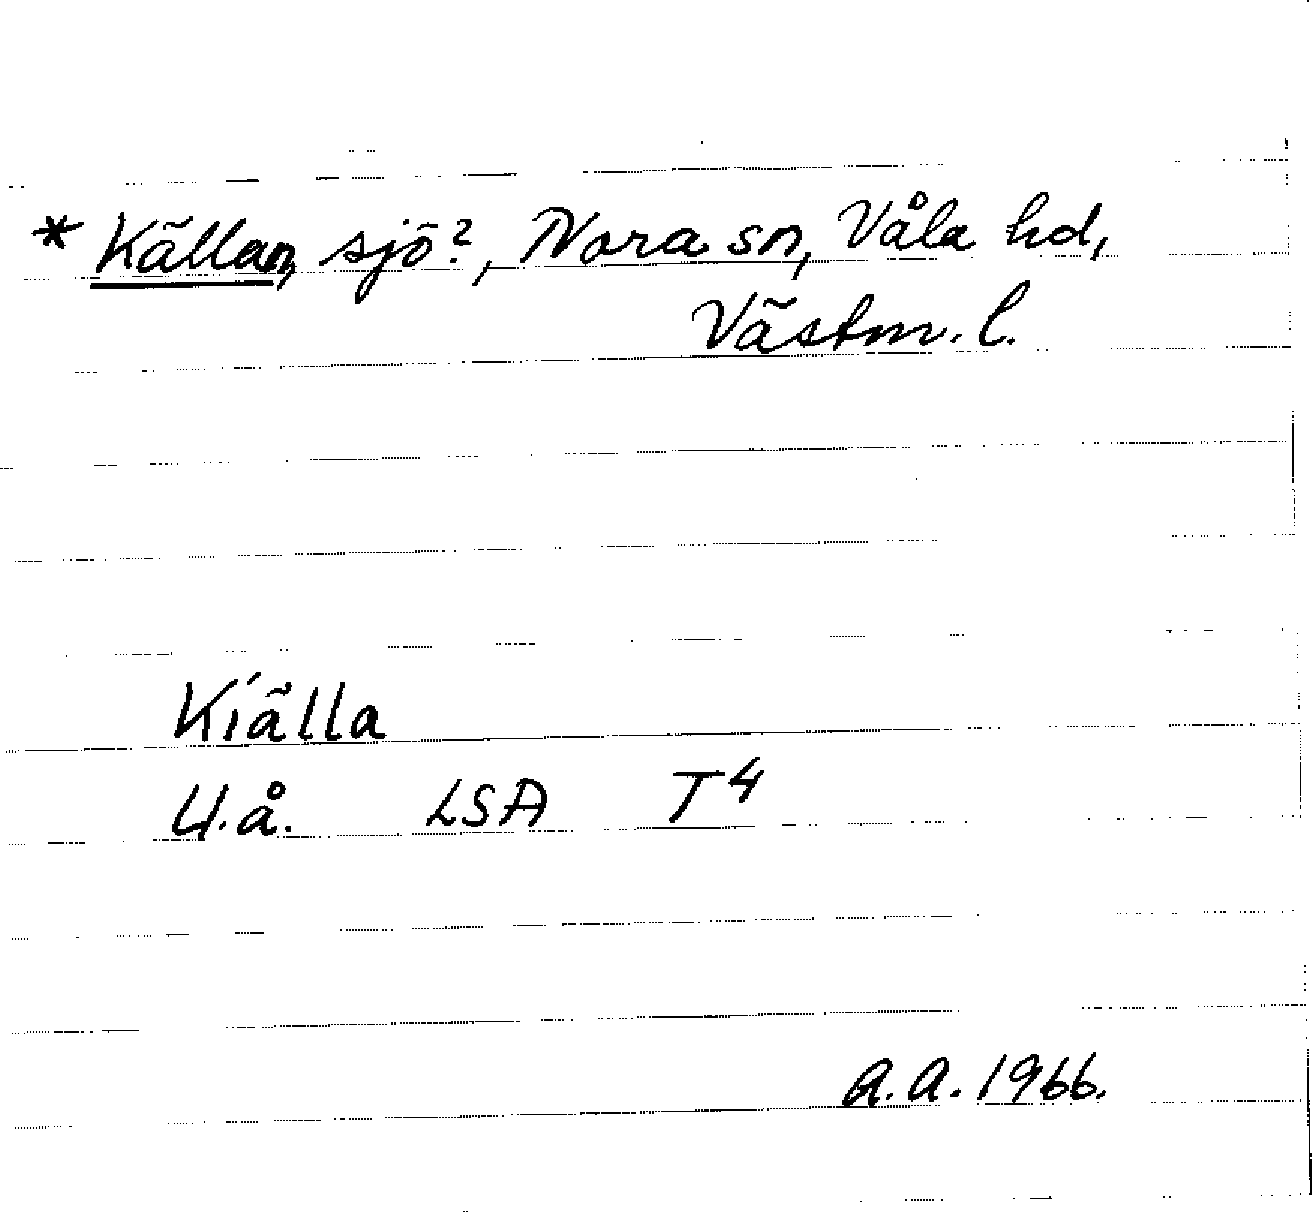 * Källan, sjö?, Nora sn, Våla hd,
Västm. l.
Kiälla
U.å. LSA T4
A.A. 1966.